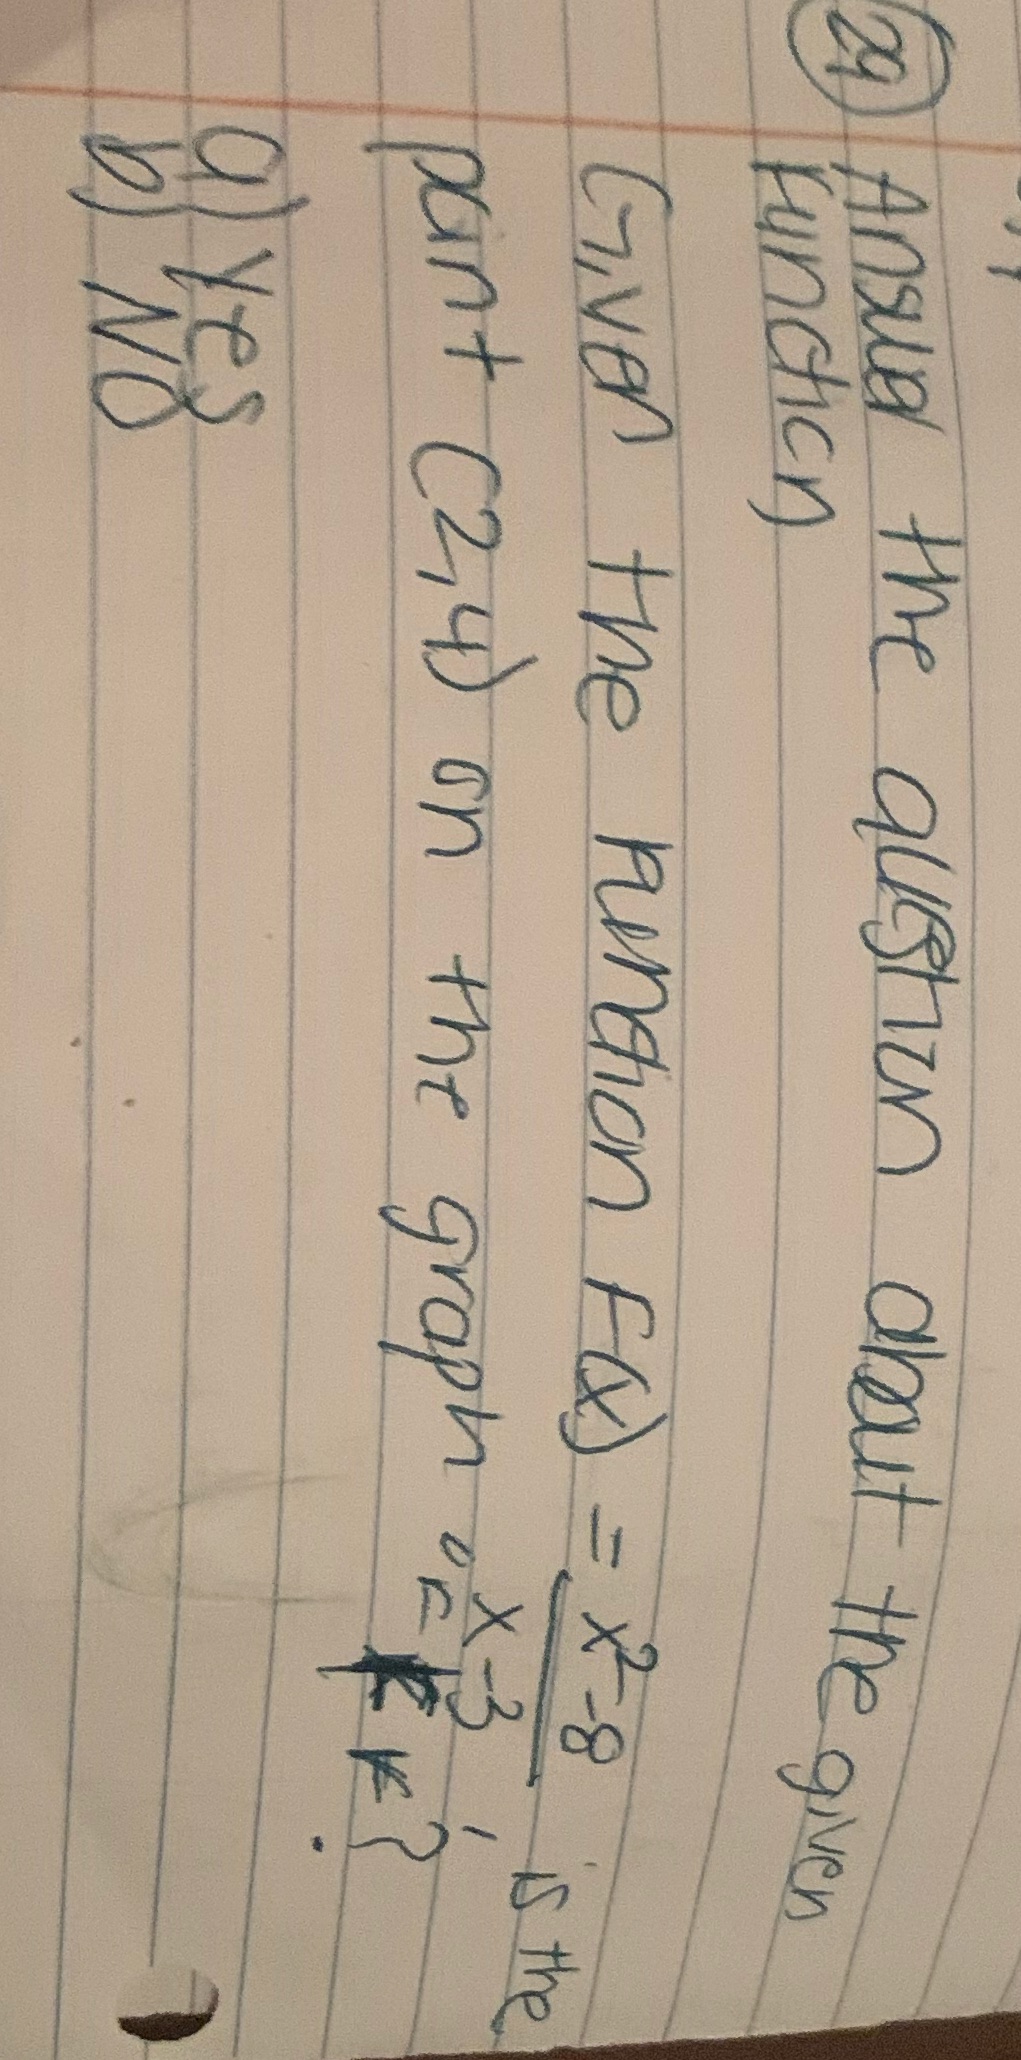 24 Answer the question about the given
function
Given the function F(x) = x²-8 / x-3, is the
point (2,4) on the graph of F?
a) Yes
b) NO